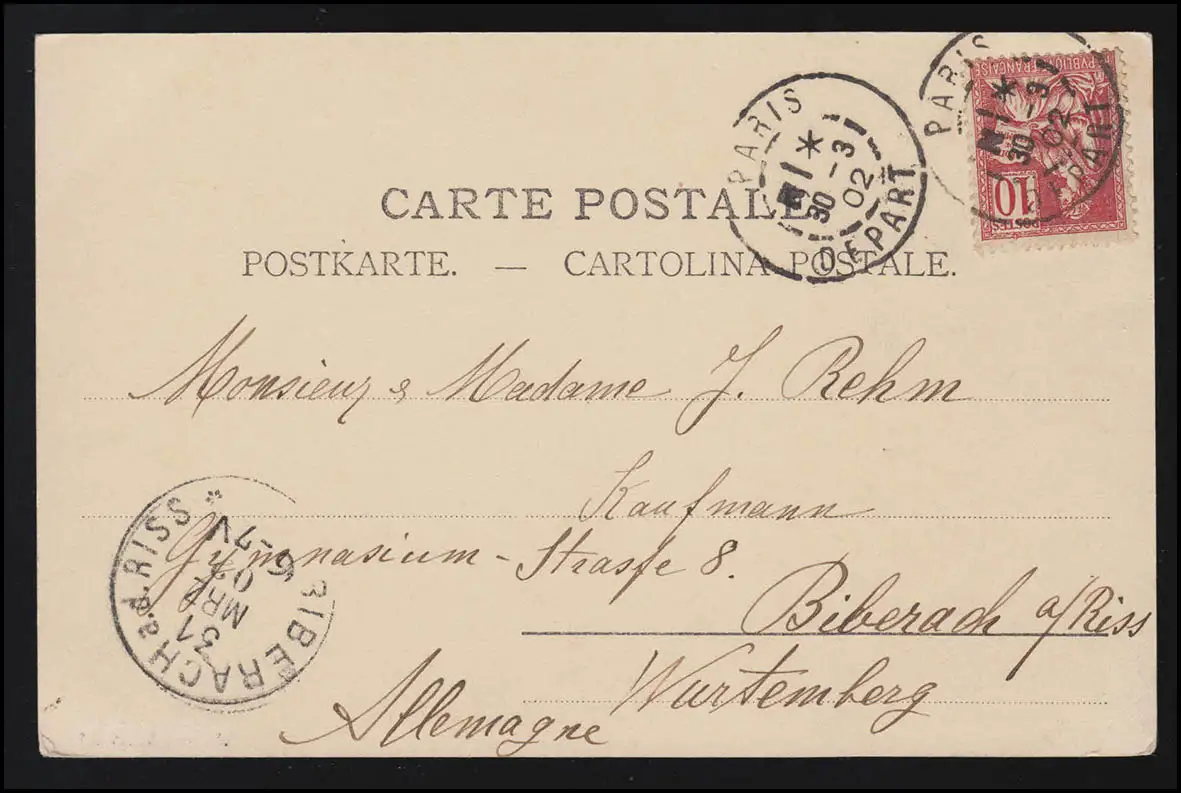 PARIS
* 
30 -3
02
DEPART
PARIS
*
30 -3
02
DEPART
PVBLIQUE
FRANÇAISE
10
POSTES
CARTE POSTALE
POSTKARTE. — CARTOLINA POSTALE.
Monsieur & Madame J. Rehm
Kaufmann
Gymnasium-Strasse 8.
Biberach a/Riss
Wurtemberg
Allemagne
BIBERACH a.d. RISS *
31
MRZ
02
6-7V